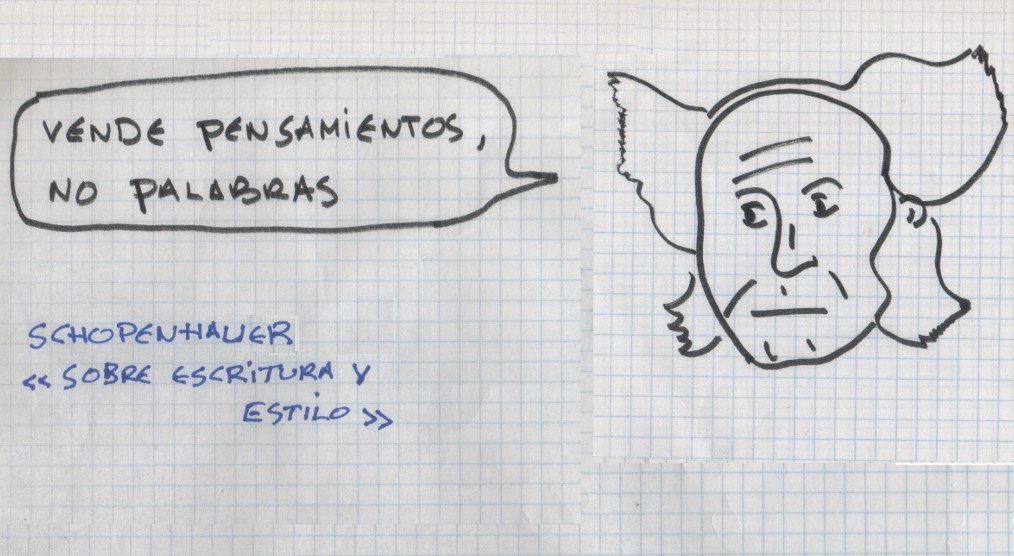 VENDE PENSAMIENTOS,
NO PALABRAS
SCHOPENHAUER
«SOBRE ESCRITURA Y
ESTILO»